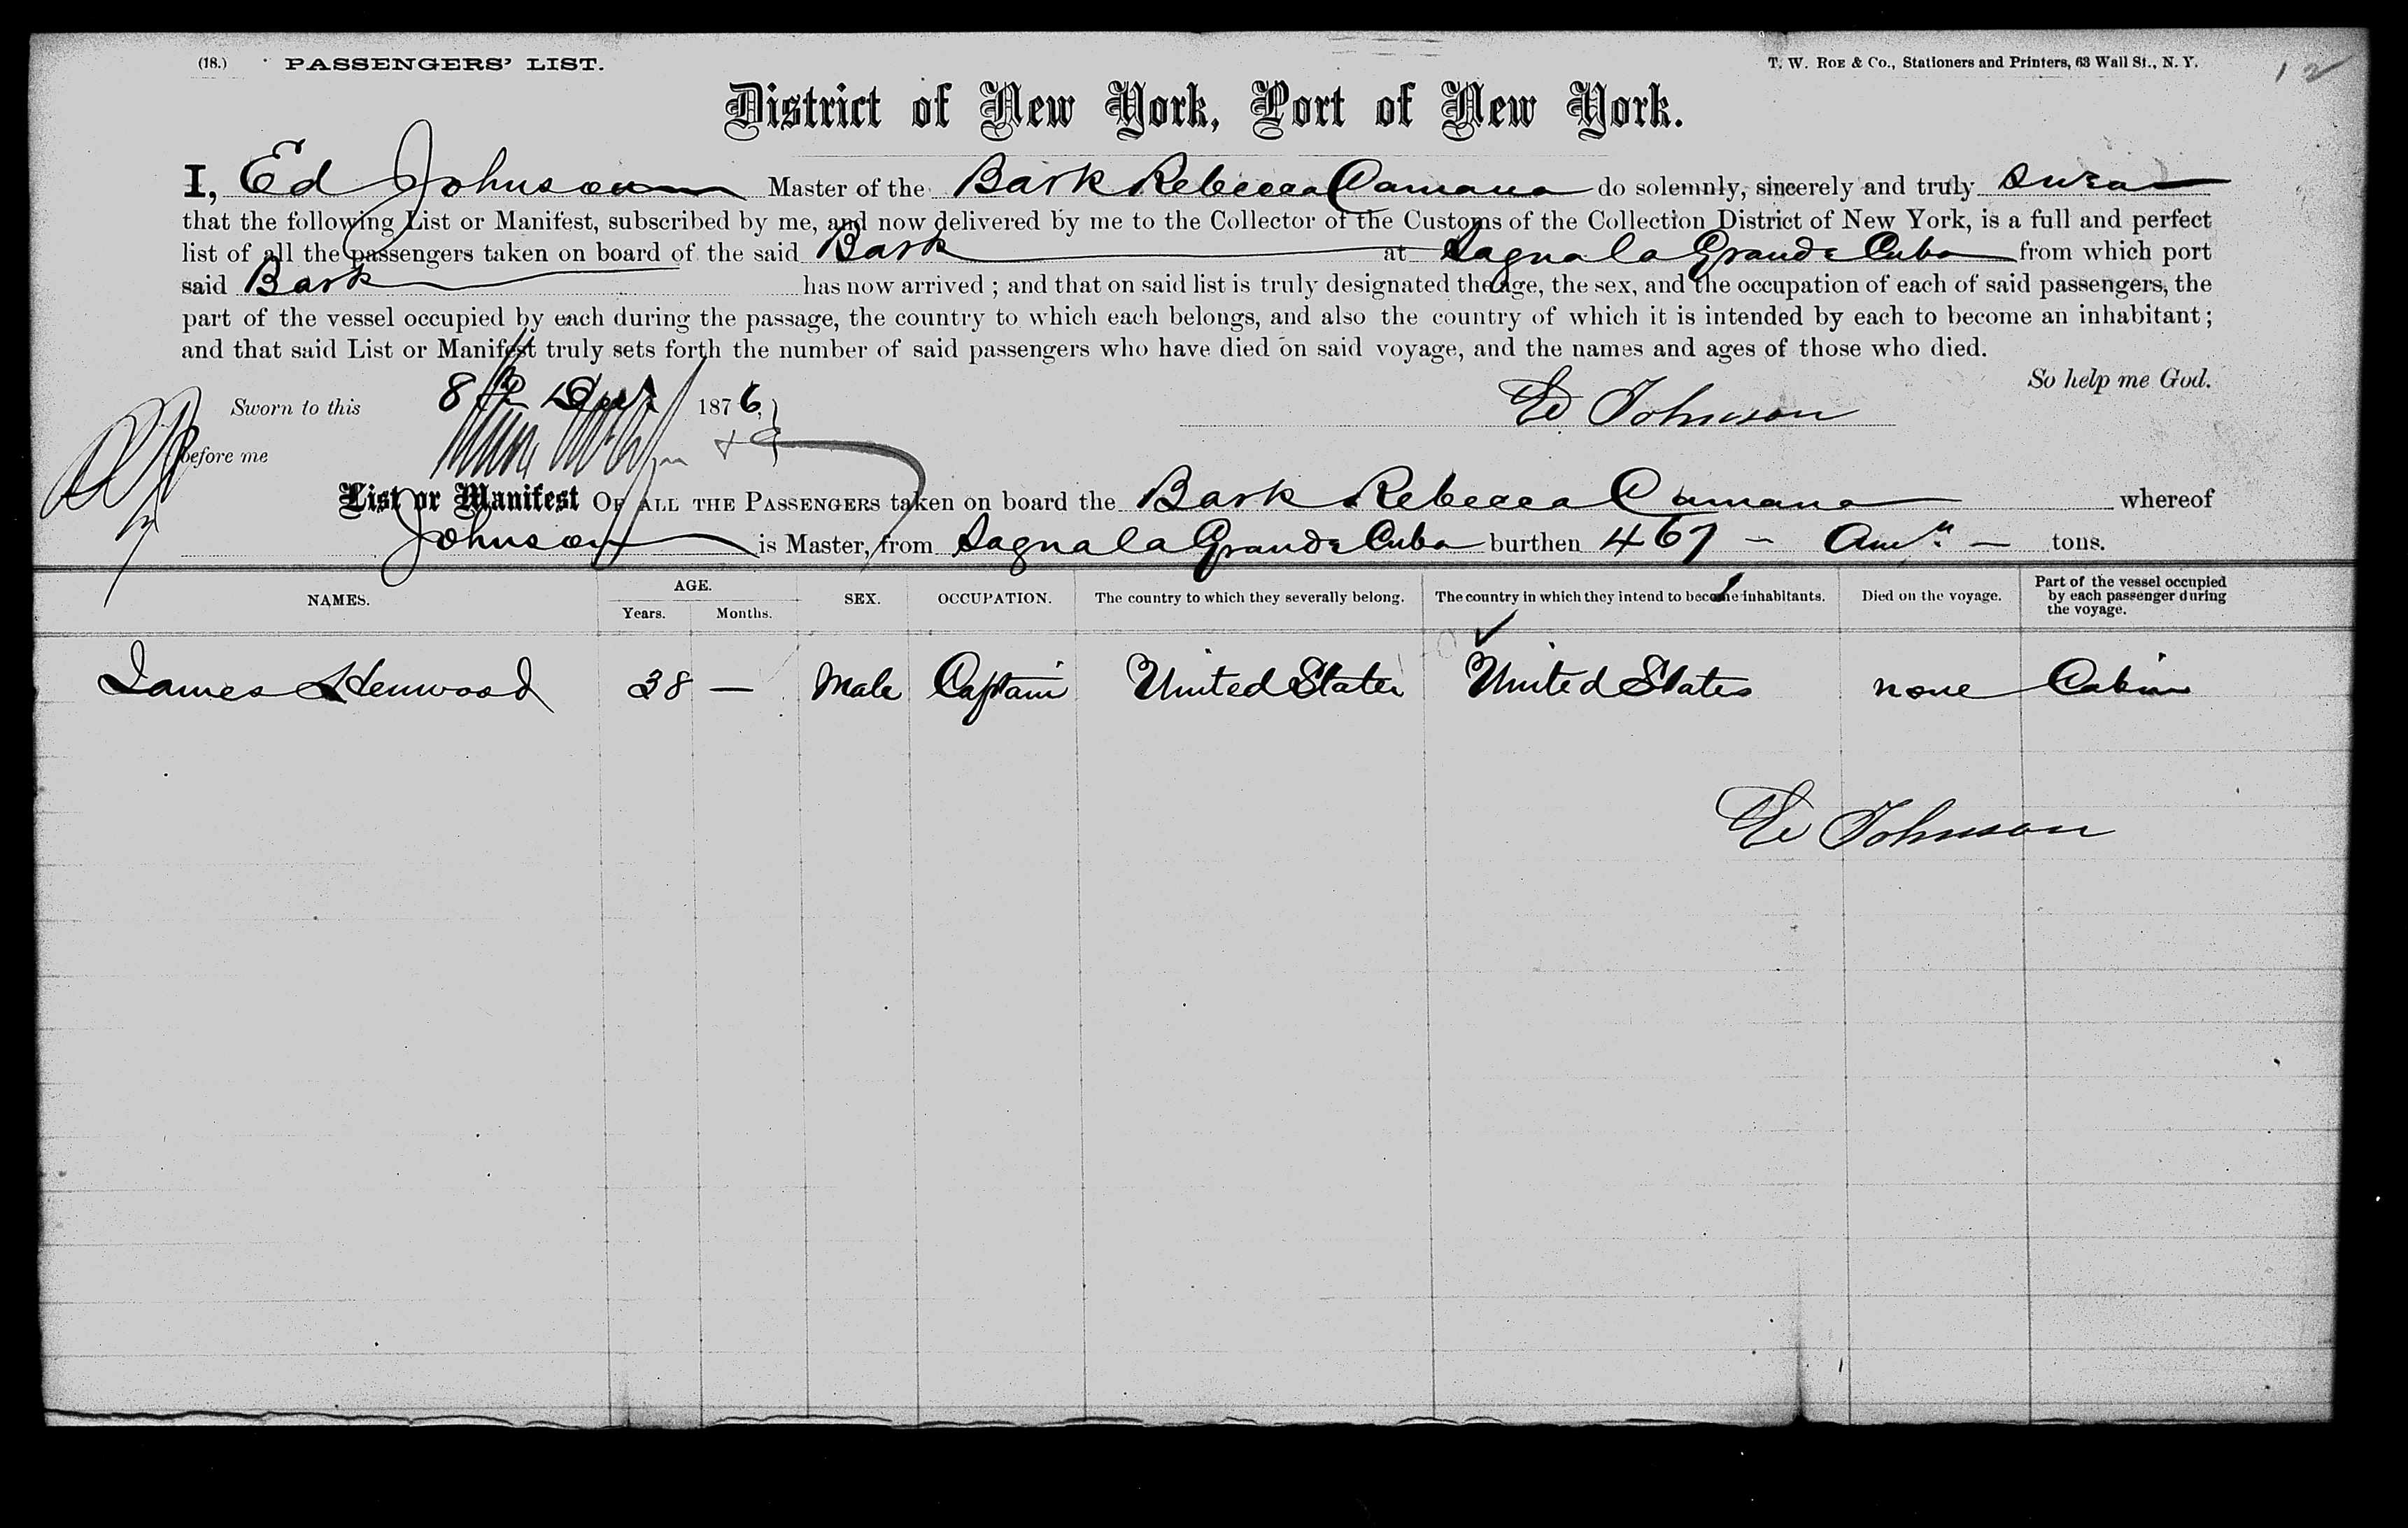 (18.) PASSENGERS' LIST. T. W. ROE & Co., Stationers and Printers, 63 Wall St., N. Y. 12
District of New York, Port of New York.
I, Ed Johnson Master of the Bark Rebecca Camana do solemnly, sincerely and truly swear
that the following List or Manifest, subscribed by me, and now delivered by me to the Collector of the Customs of the Collection District of New York, is a full and perfect
list of all the passengers taken on board of the said Bark at Sagua la Grande Cuba from which port
said Bark has now arrived ; and that on said list is truly designated the age, the sex, and the occupation of each of said passengers, the
part of the vessel occupied by each during the passage, the country to which each belongs, and also the country of which it is intended by each to become an inhabitant ;
and that said List or Manifest truly sets forth the number of said passengers who have died on said voyage, and the names and ages of those who died.
So help me God.
Sworn to this 8th 1876 Ed Johnson
before me
List or Manifest OF ALL THE PASSENGERS taken on board the Bark Rebecca Camana whereof
Johnson is Master, from Sagua la Grande Cuba burthen 467 - Amn. - tons.
NAMES. AGE. Years. Months. SEX. OCCUPATION. The country to which they severally belong. The country in which they intend to become inhabitants. Died on the voyage. Part of the vessel occupied by each passenger during the voyage.
James Henwood 38 — Male Captain United States United States none Cabin
Ed Johnson